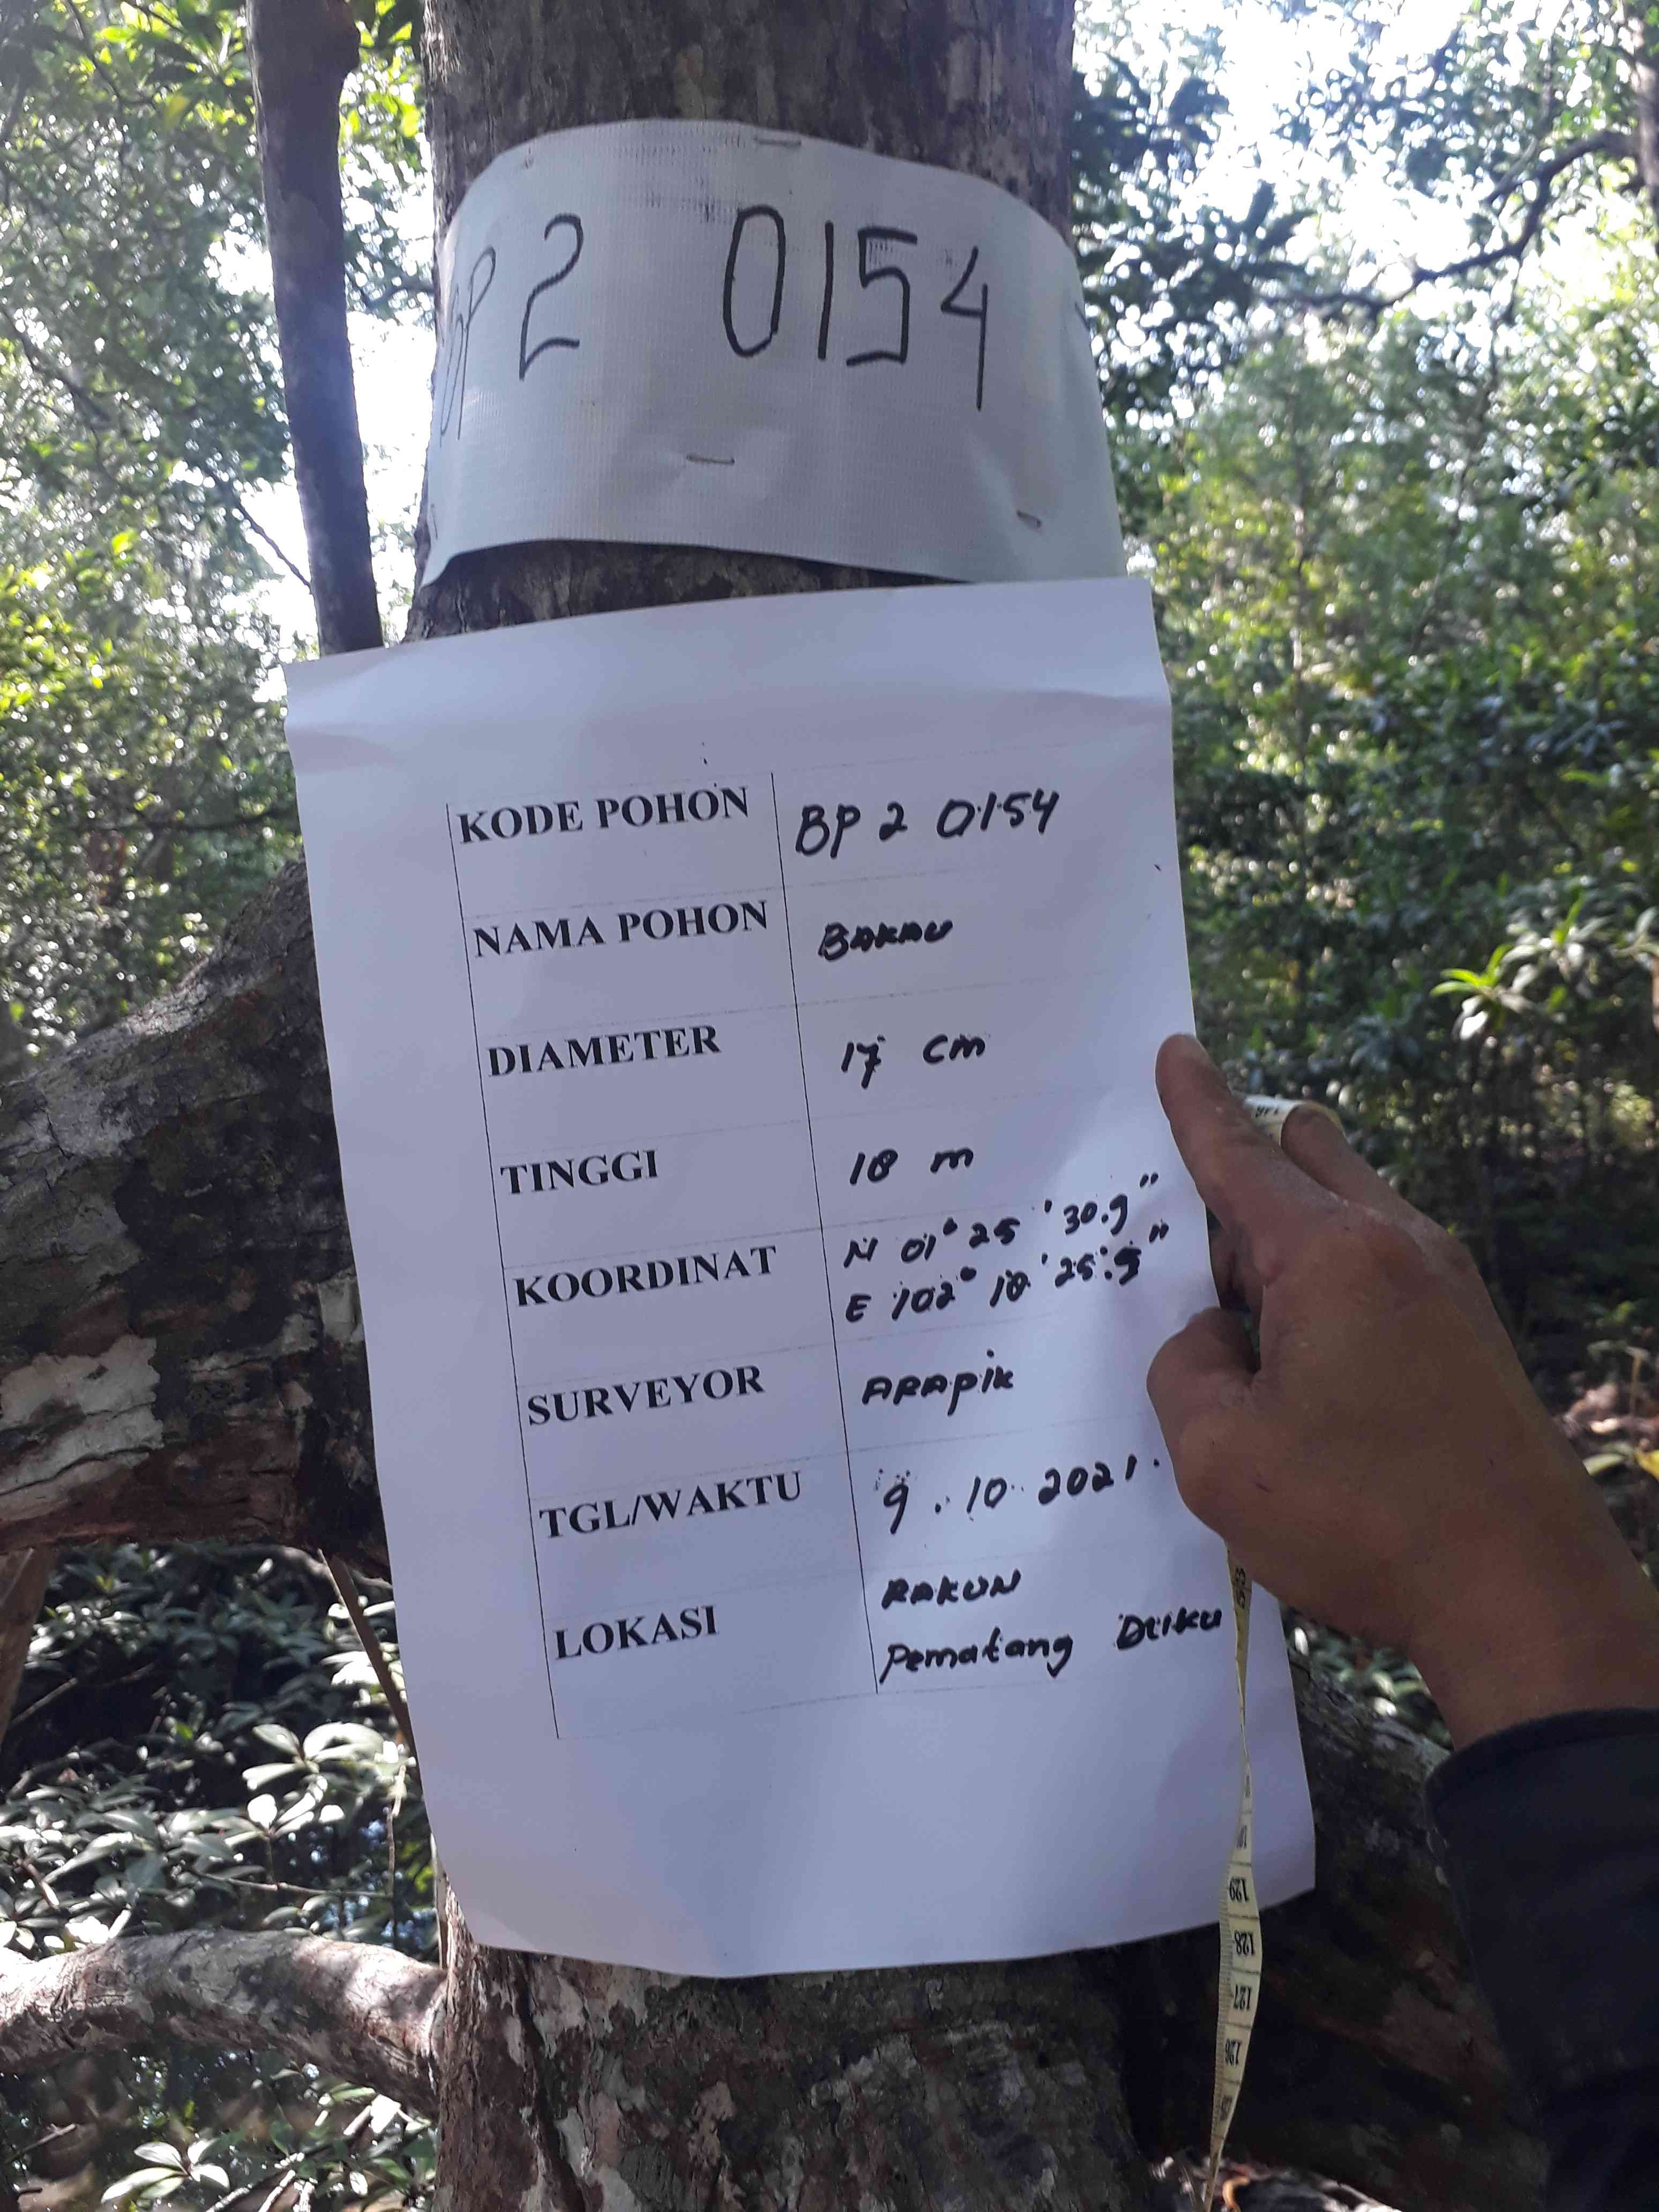 BP 2 0154
KODE POHON BP 2 0154
NAMA POHON BAKAU
DIAMETER 17 cm
TINGGI 18 m
KOORDINAT N 01° 25 ' 30.9 "
E 102° 18 ' 25.9 "
SURVEYOR ARAPIK
TGL/WAKTU 9 . 10 . 2021 .
LOKASI RAKUN
Pematang Duku
129
128
127
126